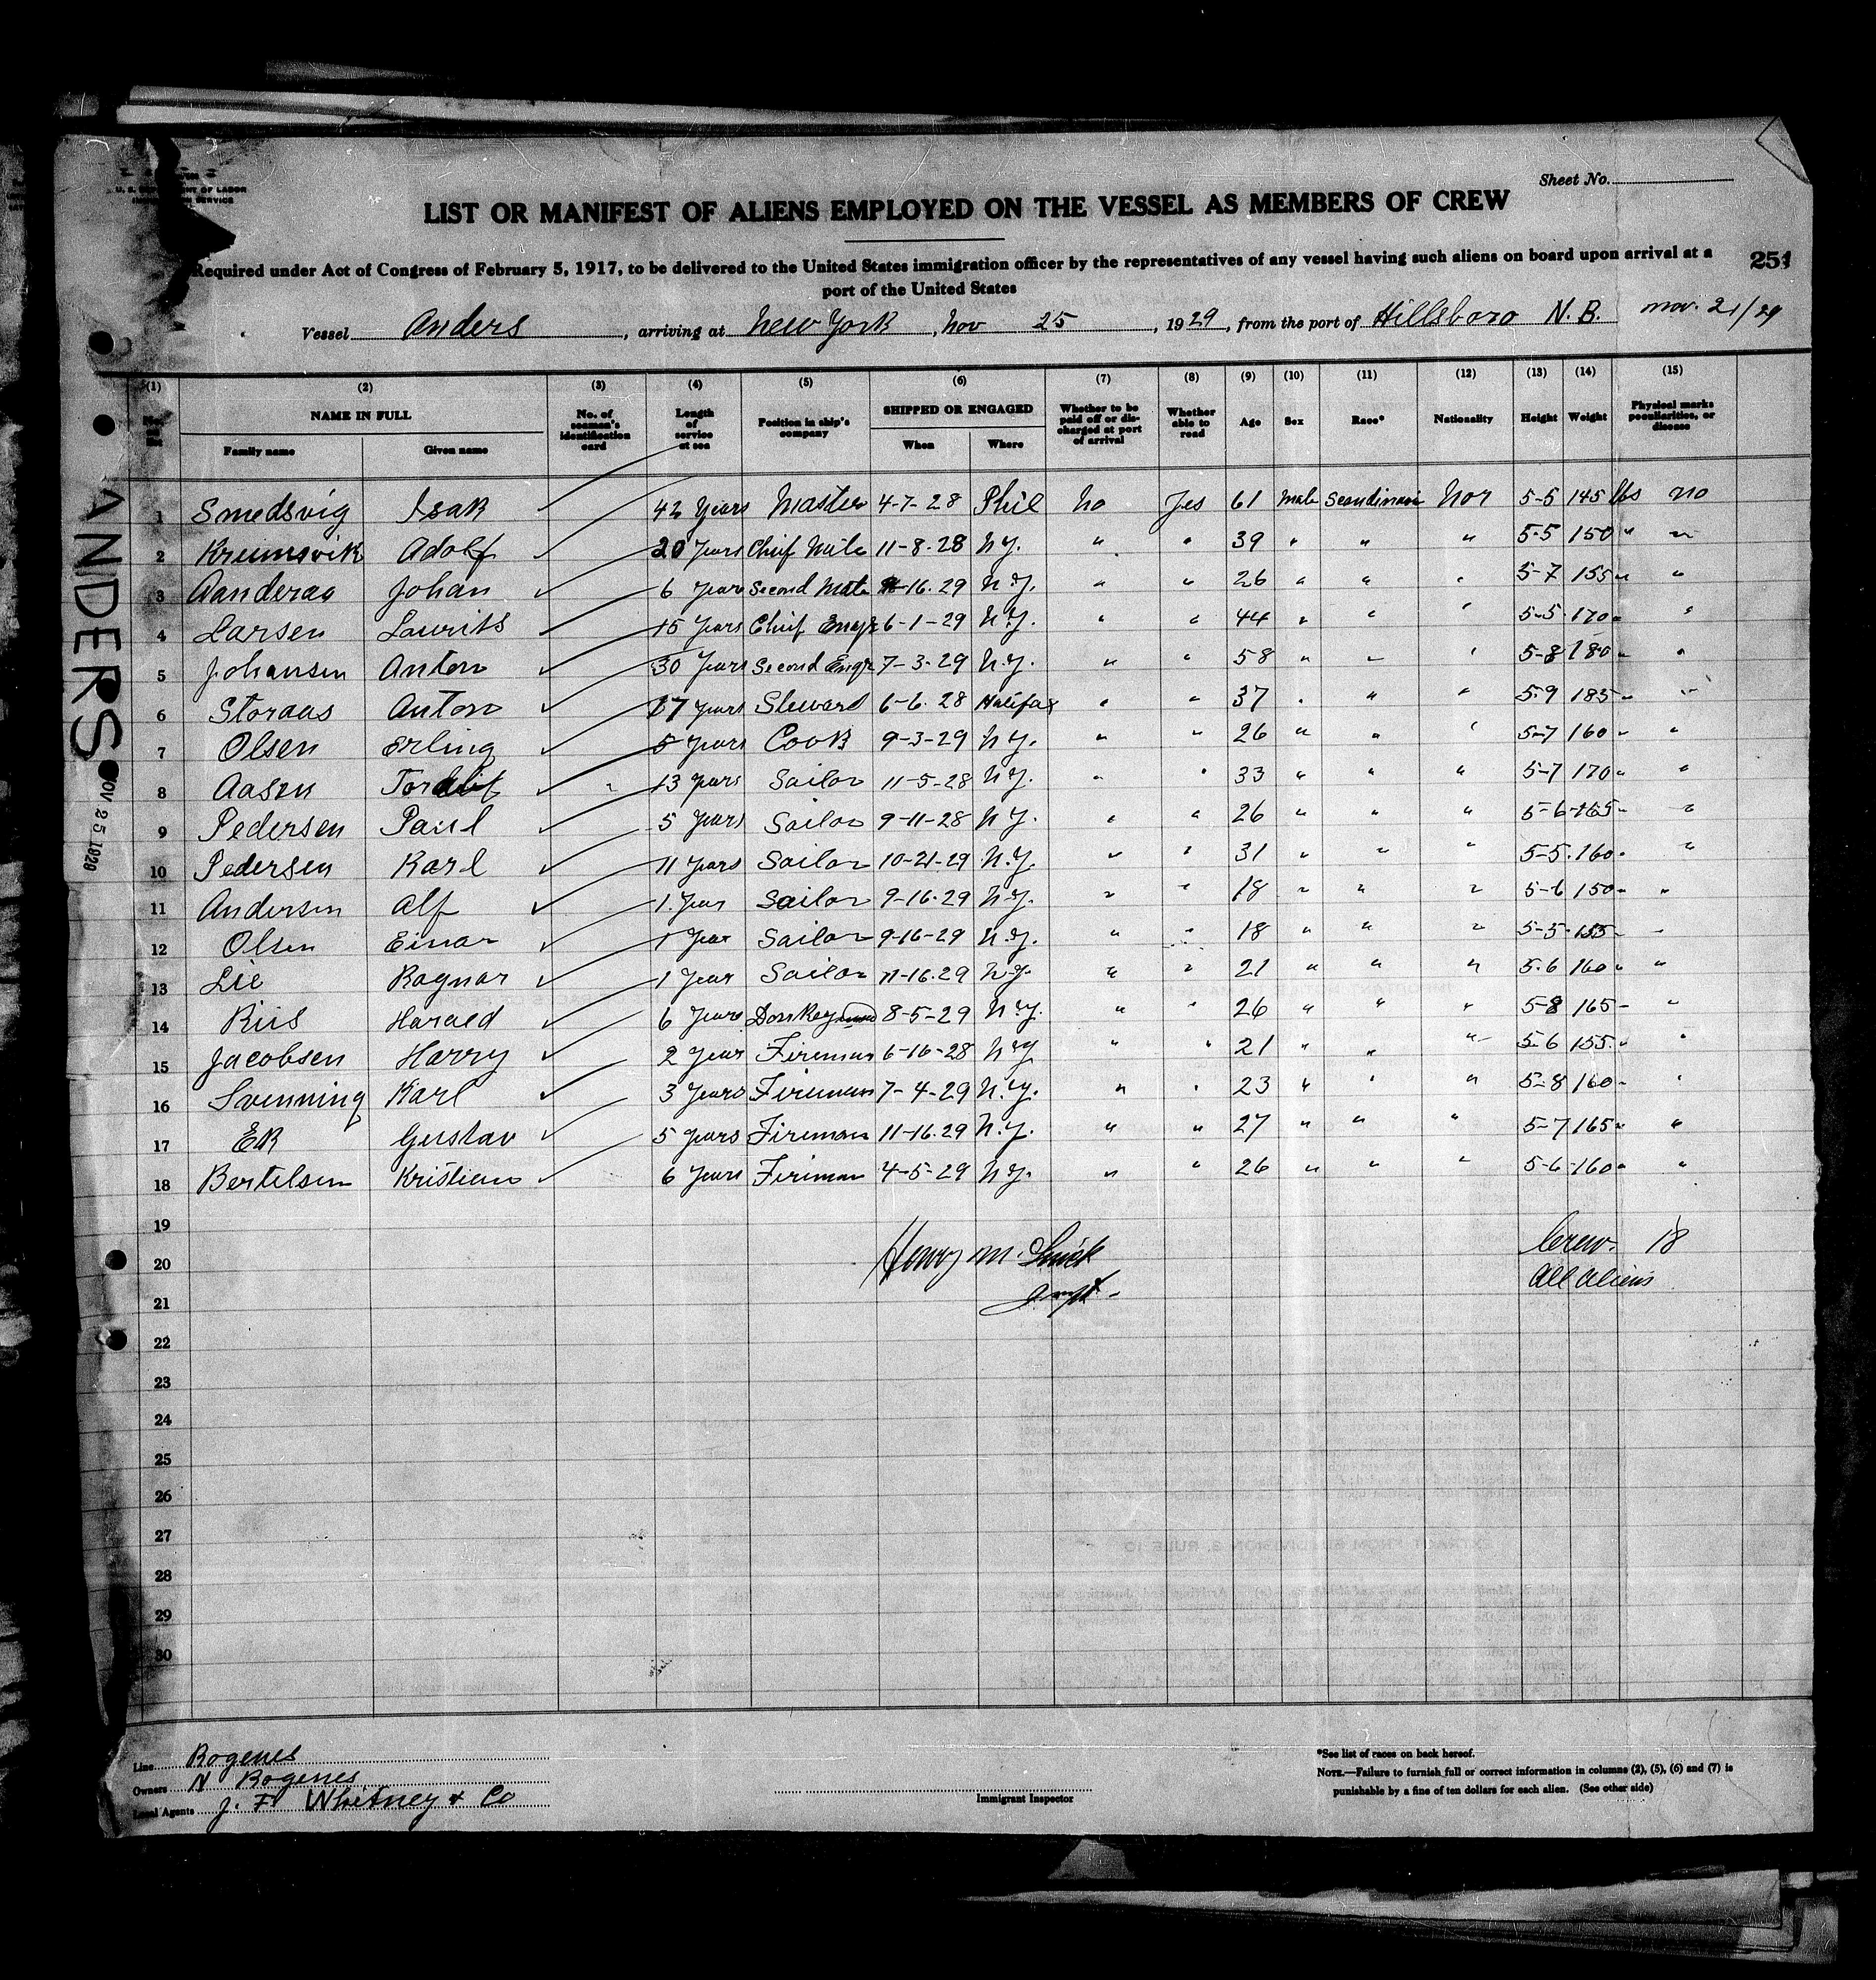 U. S. DEPARTMENT OF LABOR
IMMIGRATION SERVICE
Sheet No.
LIST OR MANIFEST OF ALIENS EMPLOYED ON THE VESSEL AS MEMBERS OF CREW
Required under Act of Congress of February 5, 1917, to be delivered to the United States immigration officer by the representatives of any vessel having such aliens on board upon arrival at a
port of the United States
251
Vessel Anders, arriving at New York, Nov 25, 1929, from the port of Hillsboro N. B. Nov. 21/29
(1) (2) (3) (4) (5) (6) (7) (8) (9) (10) (11) (12) (13) (14) (15)
NAME IN FULL
Family name Given name
No. of seaman's identification card
Length of service at sea
Position in ship's company
SHIPPED OR ENGAGED
When Where
Whether to be paid off or discharged at port of arrival
Whether able to read
Age
Sex
Race*
Nationality
Height
Weight
Physical marks peculiarities, or disease
1 Smedsvig Isak 42 Years Master 4-7-28 Phil No Yes 61 Male Scandinavia Nor 5-5 145 lbs no
2 Krumsvik Adolf 20 Years Chief Mate 11-8-28 N.Y. " " 39 " " " 5-5 150 " "
3 Aanderaa Johan 6 Years Second Mate 11-16-29 N.Y. " " 26 " " " 5-7 155 " "
4 Larsen Laurits 15 Years Chief Engr 6-1-29 N.Y. " " 44 " " " 5-5 170 " "
5 Johansen Anton 30 Years Second Engr 7-3-29 N.Y. " " 58 " " " 5-8 180 " "
6 Storaas Anton 17 Years Steward 6-6-28 Halifax " " 37 " " " 5-9 185 " "
7 Olsen Erling 5 Years Cook 9-3-29 N.Y. " " 26 " " " 5-7 160 " "
8 Aasen Tordlif 13 Years Sailor 11-5-28 N.Y. " " 33 " " " 5-7 170 " "
9 Pedersen Paul 5 Years Sailor 9-11-28 N.Y. " " 26 " " " 5-6 165 " "
10 Pedersen Karl 11 Years Sailor 10-21-29 N.Y. " " 31 " " " 5-5 160 " "
11 Andersen Alf 1 Year Sailor 9-16-29 N.Y. " " 18 " " " 5-6 150 " "
12 Olsen Einar 1 Year Sailor 9-16-29 N.Y. " " 18 " " " 5-5 155 " "
13 Lie Ragnar 1 Year Sailor 11-16-29 N.Y. " " 21 " " " 5-6 160 " "
14 Riis Harald 6 Years Donkeyman 8-5-29 N.Y. " " 26 " " " 5-8 165 " "
15 Jacobsen Harry 2 Year Fireman 6-16-28 N.Y. " " 21 " " " 5-6 155 " "
16 Svenning Karl 3 Years Fireman 7-4-29 N.Y. " " 23 " " " 5-8 160 " "
17 Ek Gustav 5 Years Fireman 11-16-29 N.Y. " " 27 " " " 5-7 165 " "
18 Bertelsen Kristian 6 Years Fireman 4-5-29 N.Y. " " 26 " " " 5-6 160 " "
19
20 Henry M. Crew. 18
21 All aliens
22
23
24
25
26
27
28
29
30
ANDERS
NOV 25 1929
Line Rogenes
Owners N Rogenes
Local Agents J. F. Whitney & Co
Immigrant Inspector
*See list of races on back hereof.
NOTE.—Failure to furnish full or correct information in columns (2), (5), (6) and (7) is
punishable by a fine of ten dollars for each alien. (See other side)